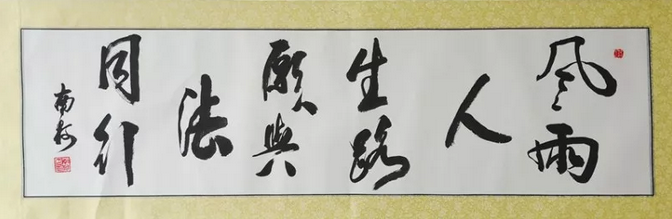 風雨
人
生路
願與
法
同行